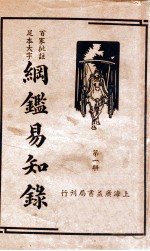 百家批註
足本大字
綱鑑易知錄
第一冊
上海廣益書局刊行